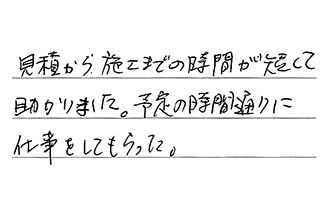 見積から施工までの時間が短くて
助かりました。予定の時間通りに
仕事をしてもらった。